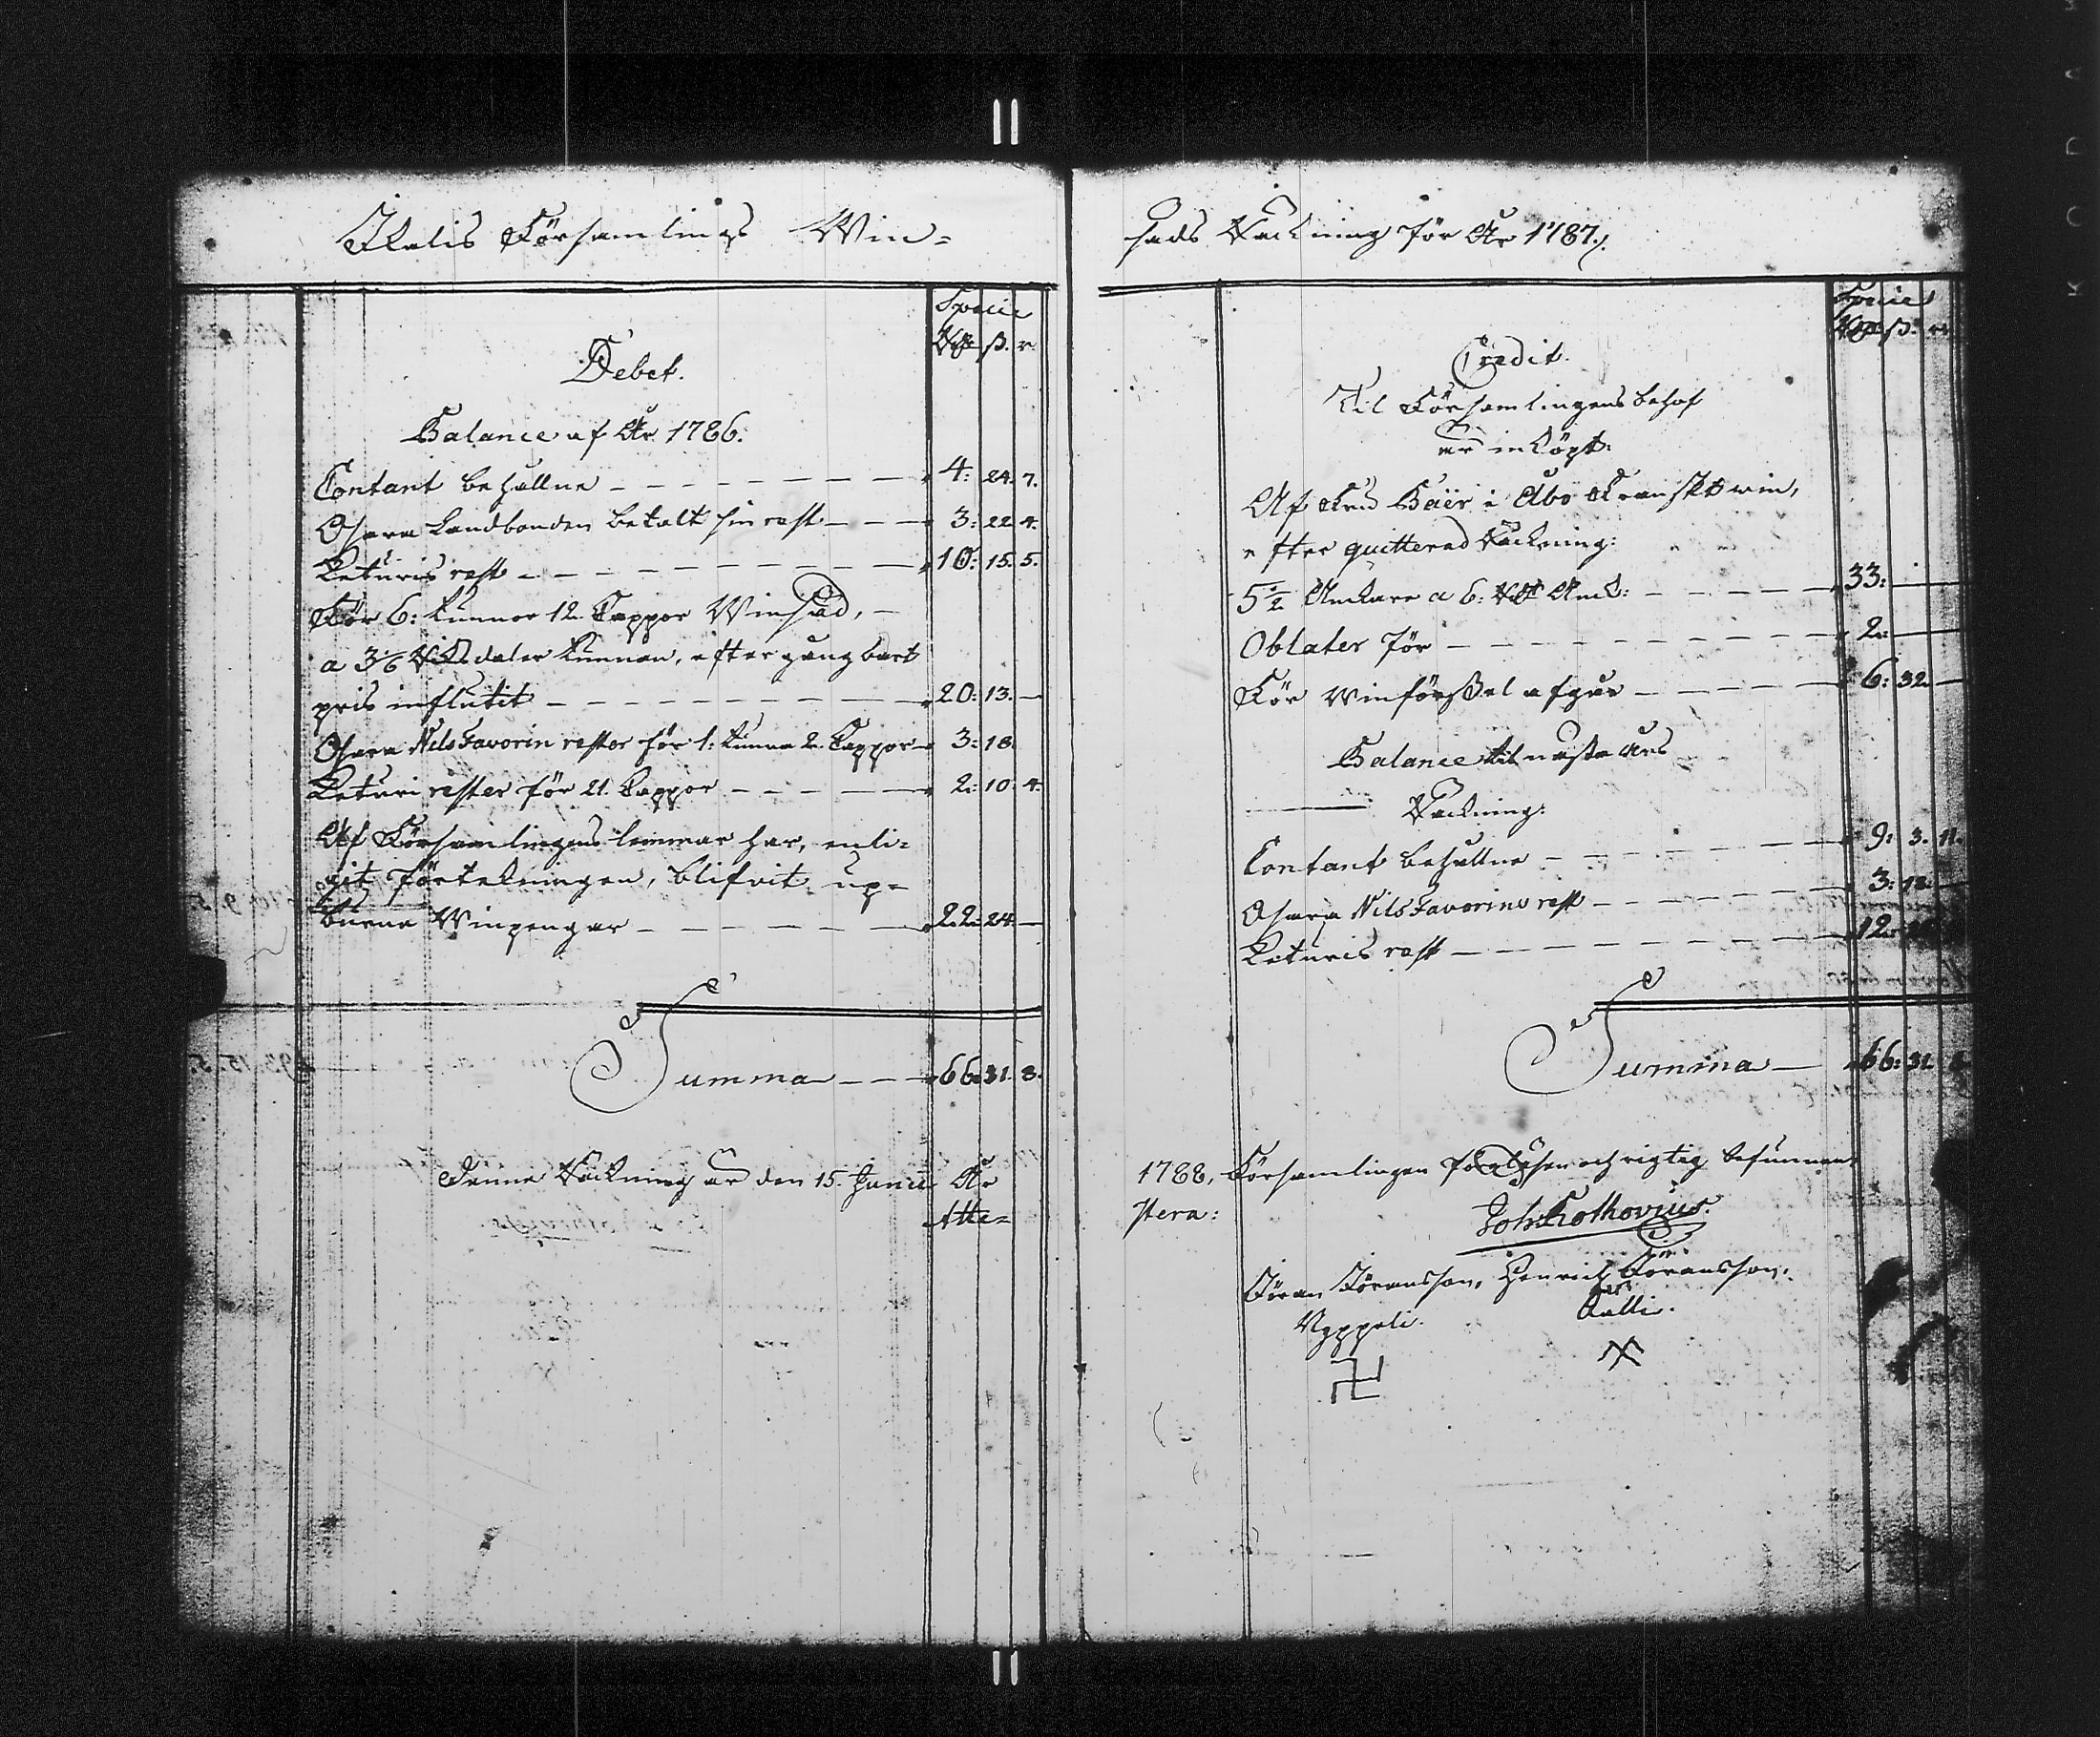 Ikalis Församlings Win=
Specie
Rdr ß. r.
Debet.
Balance af År 1786.
Contant behållne 4: 24. 7.
Osara Landbonden betalt sin rest 3: 22. 4.
Keturis rest 10: 15. 5.
För 6: tunnor 12. Cappor Winsäd,
a 3 1/6 Riksdaler tunnan, efter gångbart
pris influtit 20: 13. —
Osara Nils Favorin rester för 1: tunna 2. Cappor 3: 18.
Keturi rester för 21. Cappor 2: 10. 4.
Af Församlingens lemmar har, enli=
git förtekningen, blifvit up=
burne Winpengar 22: 24. —
Summa 66: 31. 8.
Denne Räkning är den 15. Junii År
Atte=
säds Räkning för År 1787.
Specie
Rdr ß. r.
Credit.
Til Församlingens behof
är inköpt:
Af Baër i Åbo Franskt win,
efter quitterad Räkning:
5 1/2 Ankare a 6: Rdr Ank: 33: —
Oblater för 2: —
För winförßel afgår 6: 32. —
Balance til nästa Års
Räkning:
Contant behållne 9: 3. 11.
Osara Nils Favorins rest 3: 18. —
Keturis rest 12:
Summa 66: 31.
1788, Församlingen föreläsen och rigtig befunnen
stera:
Joh: Kothovius.
Jöran Jöransson, Henrich Jöransson,
Nyppeli. Kalli.